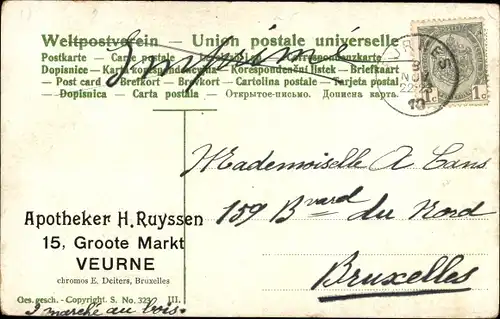 Weltpostverein — Union postale universelle
Imprimé
Postkarte — Carte postale — Correspondenzkarte
Dopisnice — Karta korespondencyjna — Korespondenční lístek — Briefkaart
Post card — Brefkort — Brevkort — Cartolina postale — Tarjeta postal
Dopisnica — Carta postala — Открытое-письмо. Дописна карта.
VEURNES
NOV
22-23
10
1c 1c
Mademoiselle A Cans
159 Bvard du Nord
Bruxelles
Apotheker H. Ruyssen
15, Groote Markt
VEURNE
chromos E. Deiters, Bruxelles
Ges. gesch. - Copyright. S. No. 323 III.
2 marche au bois.